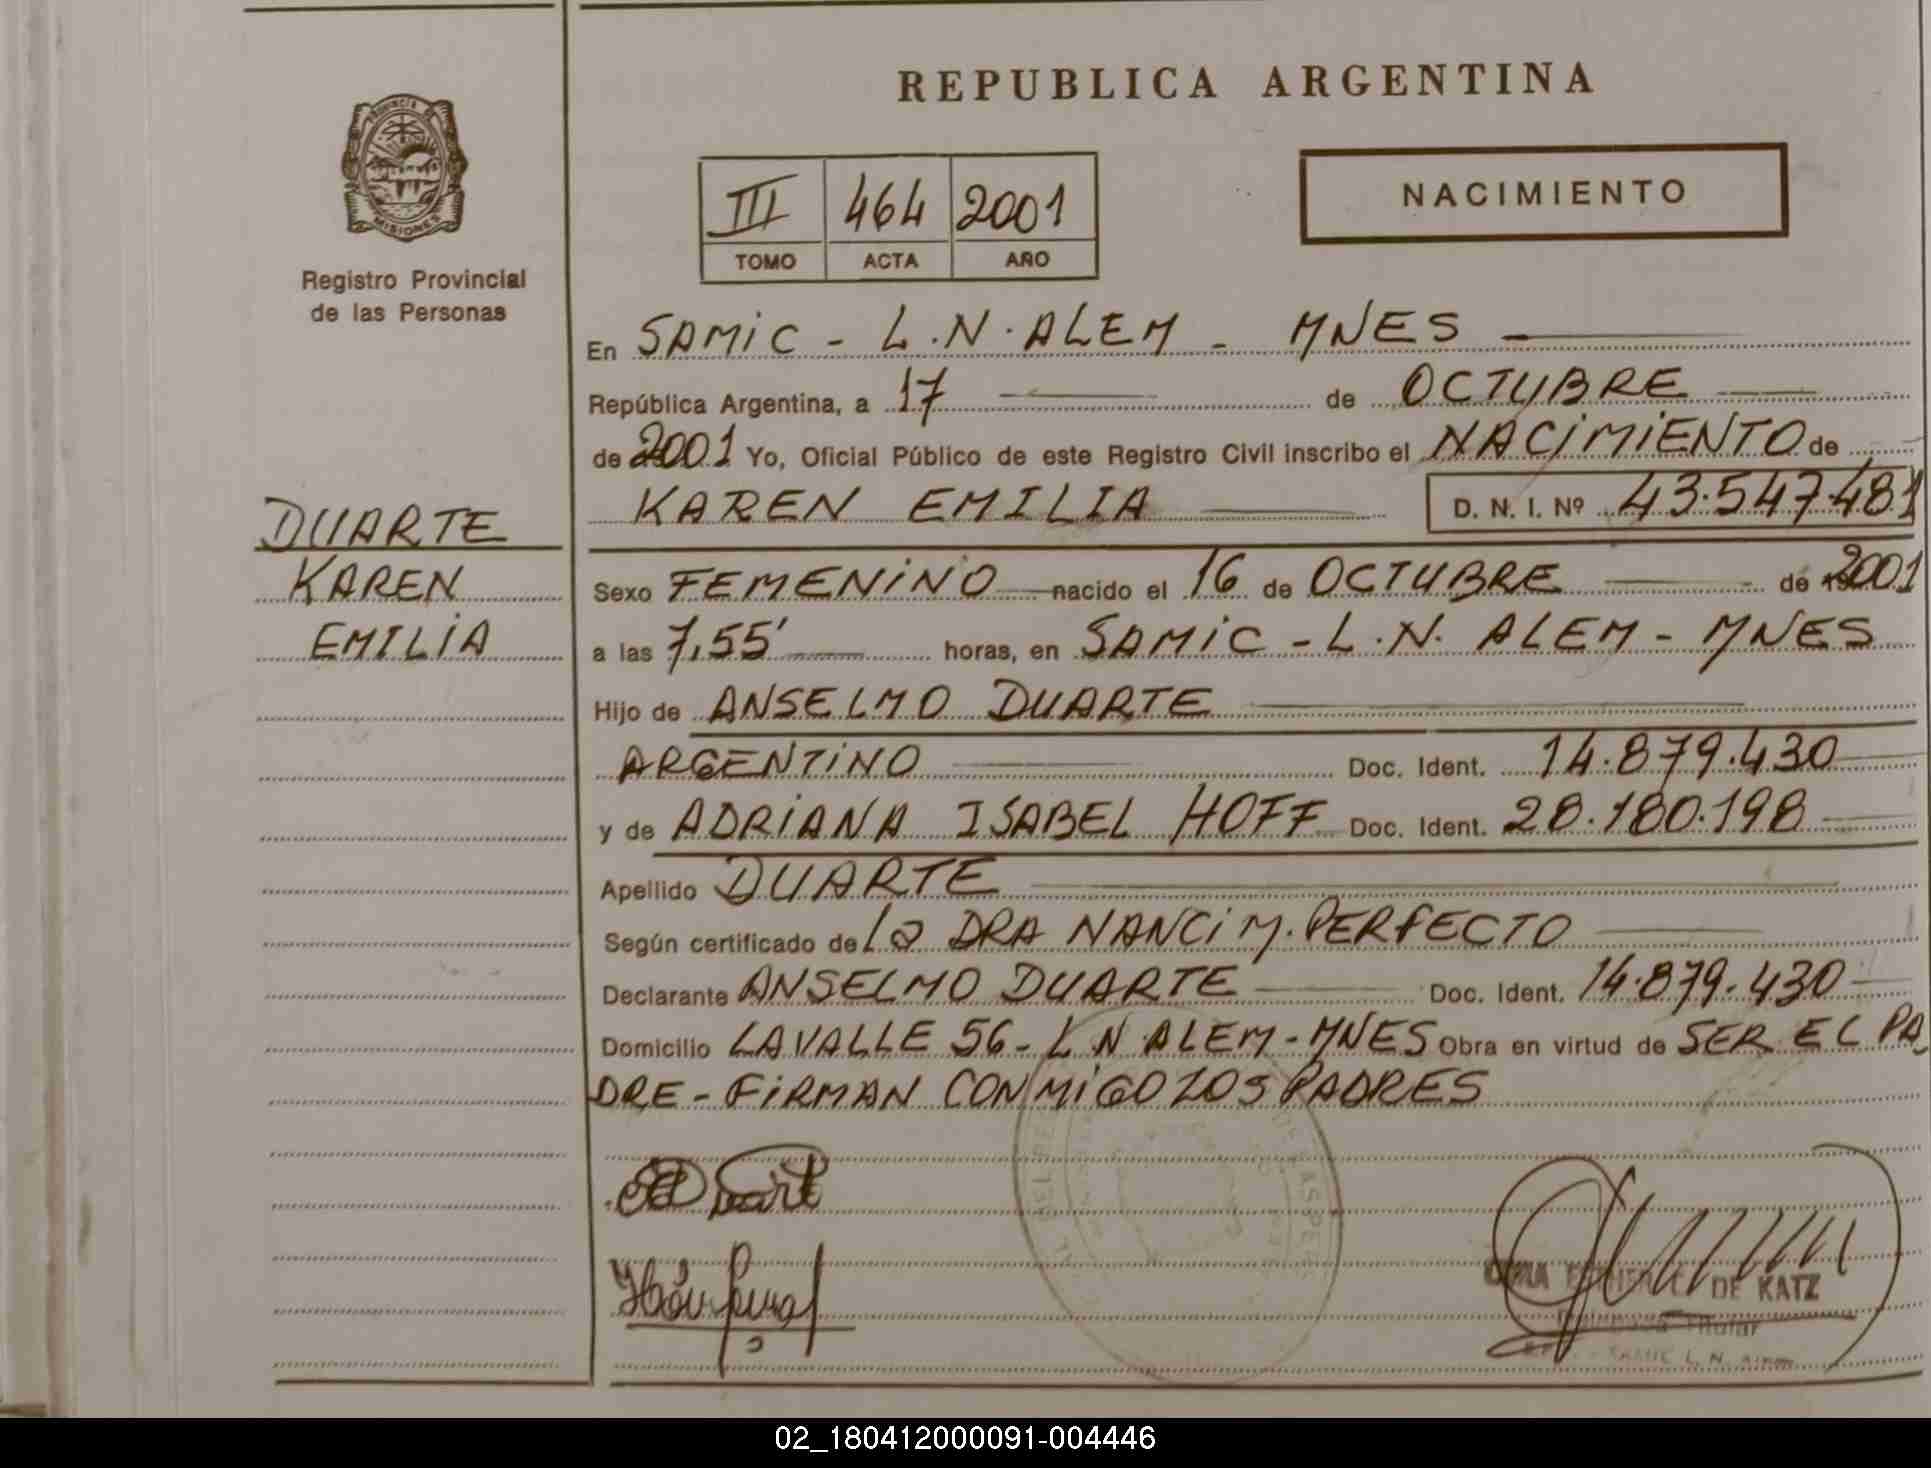 REPUBLICA ARGENTINA
PROVINCIA DE
MISIONES
Registro Provincial
de las Personas
III 464 2001
TOMO ACTA AÑO
NACIMIENTO
En SAMIC - L.N. ALEM - MNES
República Argentina, a 17 de OCTUBRE
de 2001 Yo, Oficial Público de este Registro Civil inscribo el NACIMIENTO de
KAREN EMILIA D. N. I. Nº 43.547.481
DUARTE
KAREN
EMILIA
Sexo FEMENINO nacido el 16 de OCTUBRE de 2001
a las 7,55' horas, en SAMIC - L.N. ALEM - MNES
Hijo de ANSELMO DUARTE
ARGENTINO Doc. Ident. 14.879.430
y de ADRIANA ISABEL HOFF Doc. Ident. 28.180.198
Apellido DUARTE
Según certificado de la DRA NANCI M. PERFECTO
Declarante ANSELMO DUARTE Doc. Ident. 14.879.430
Domicilio LAVALLE 56 - L N ALEM - MNES Obra en virtud de SER EL PA_
DRE - FIRMAN CONMIGO LOS PADRES
DE KATZ
Titular
L. N. Alem
02_180412000091-004446